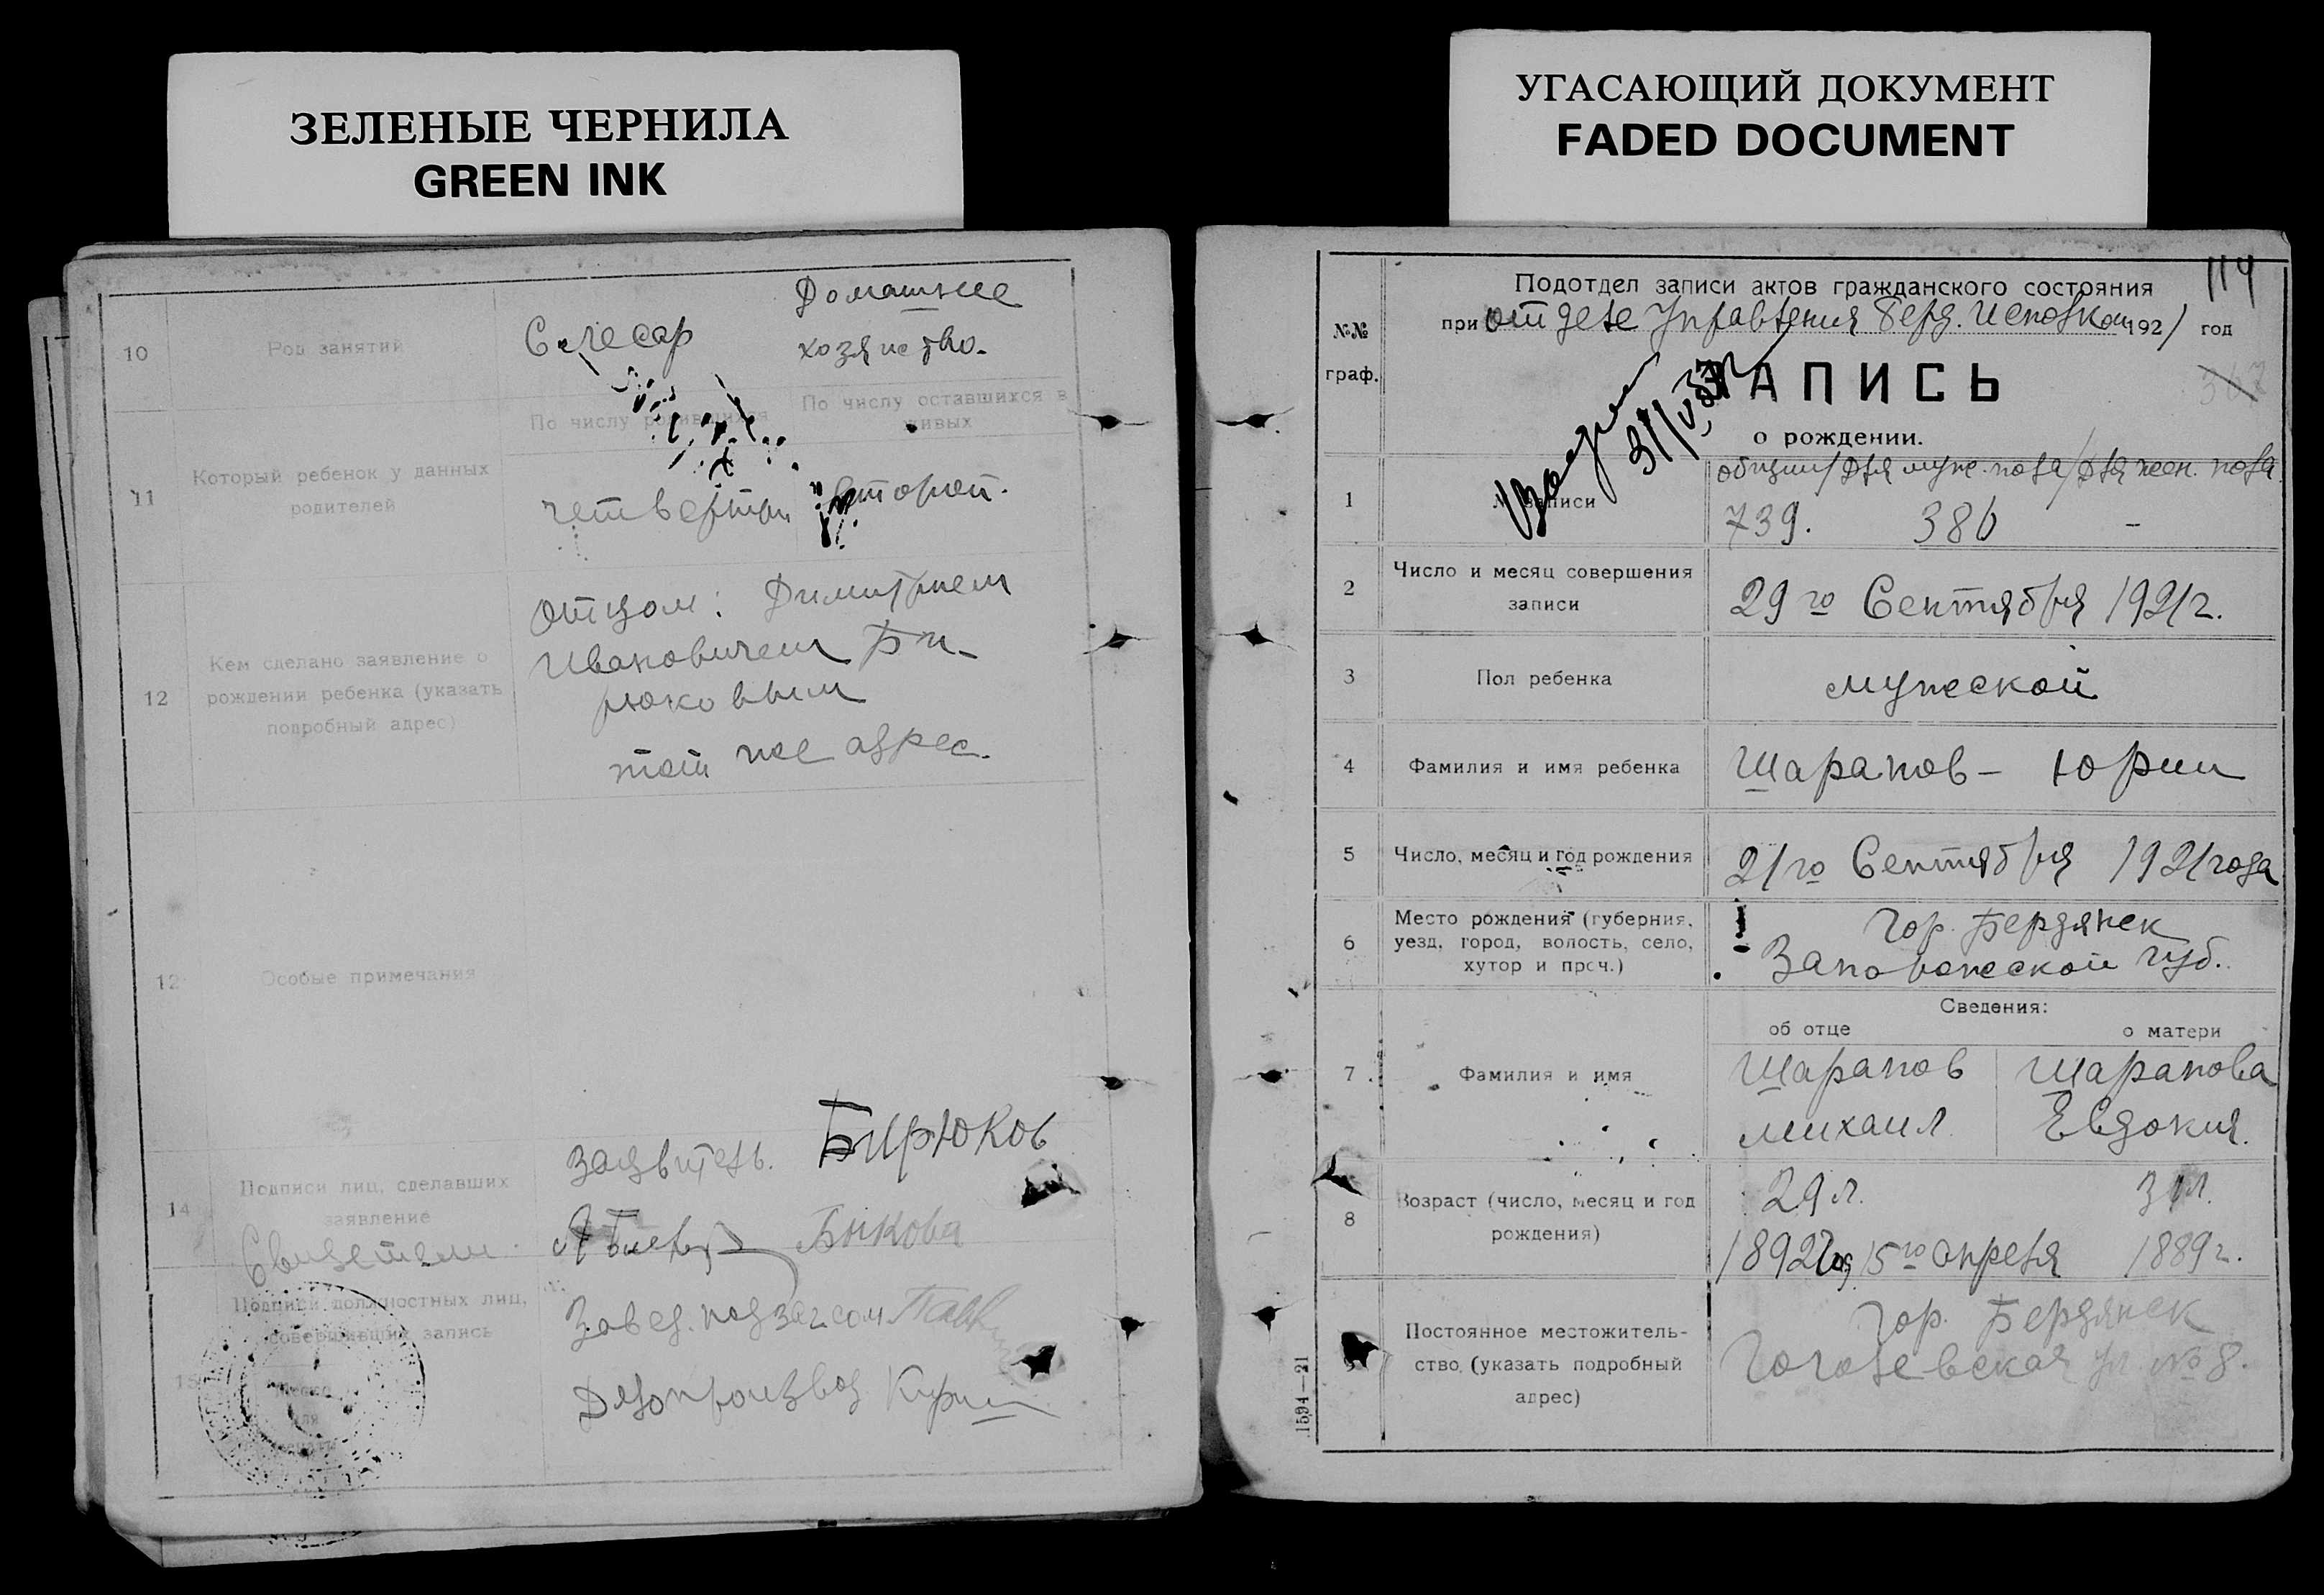 ЗЕЛЕНЫЕ ЧЕРНИЛА
GREEN INK
10
Род занятий
Слесар
Домашнее
хозяйство.
11
Который ребенок у данных
родителей
По числу родившихся
По числу оставшихся в
живых
четвертый
второй.
12
Кем сделано заявление о
рождении ребенка (указать
подробный адрес)
Отцом: Димитрием
Ивановичем Би-
рюковым
той же адрес.
Особые примечания
14
Подписи лиц, сделавших
заявление
Свидетели
заявитель. Бирюков
Быкова
Подписи должностных лиц,
совершивших запись
Завед. подзагсом
Делопроизвод
УГАСАЮЩИЙ ДОКУМЕНТ
FADED DOCUMENT
114
№№
граф.
Подотдел записи актов гражданского состояния
при отделе Управления Берд. Исполкома 1921 год
367
ЗАПИСЬ
о рождении.
1
№ записи
общий/для муж. пола/для жен. пола
739. 386 -
2
Число и месяц совершения
записи
29го Сентября 1921г.
3
Пол ребенка
мужской
4
Фамилия и имя ребенка
Шарапов - Юрий
5
Число, месяц и год рождения
21го Сентября 1921 года
6
Место рождения (губерния,
уезд, город, волость, село,
хутор и проч.)
Гор. Бердянск
Запорожской губ.
Сведения:
об отце
о матери
7
Фамилия и имя
Шарапов
Михаил
Шарапова
Евдокия.
8
Возраст (число, месяц и год
рождения)
29 л.
31 л.
1892 год 15го апреля 1889 г.
9
Постоянное местожитель-
ство (указать подробный
адрес)
Гор. Бердянск
Гоголевская ул № 8.
1594—21